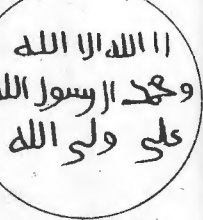 اا الله الا الله
ومحمد الرسول الله
علي ولي الله